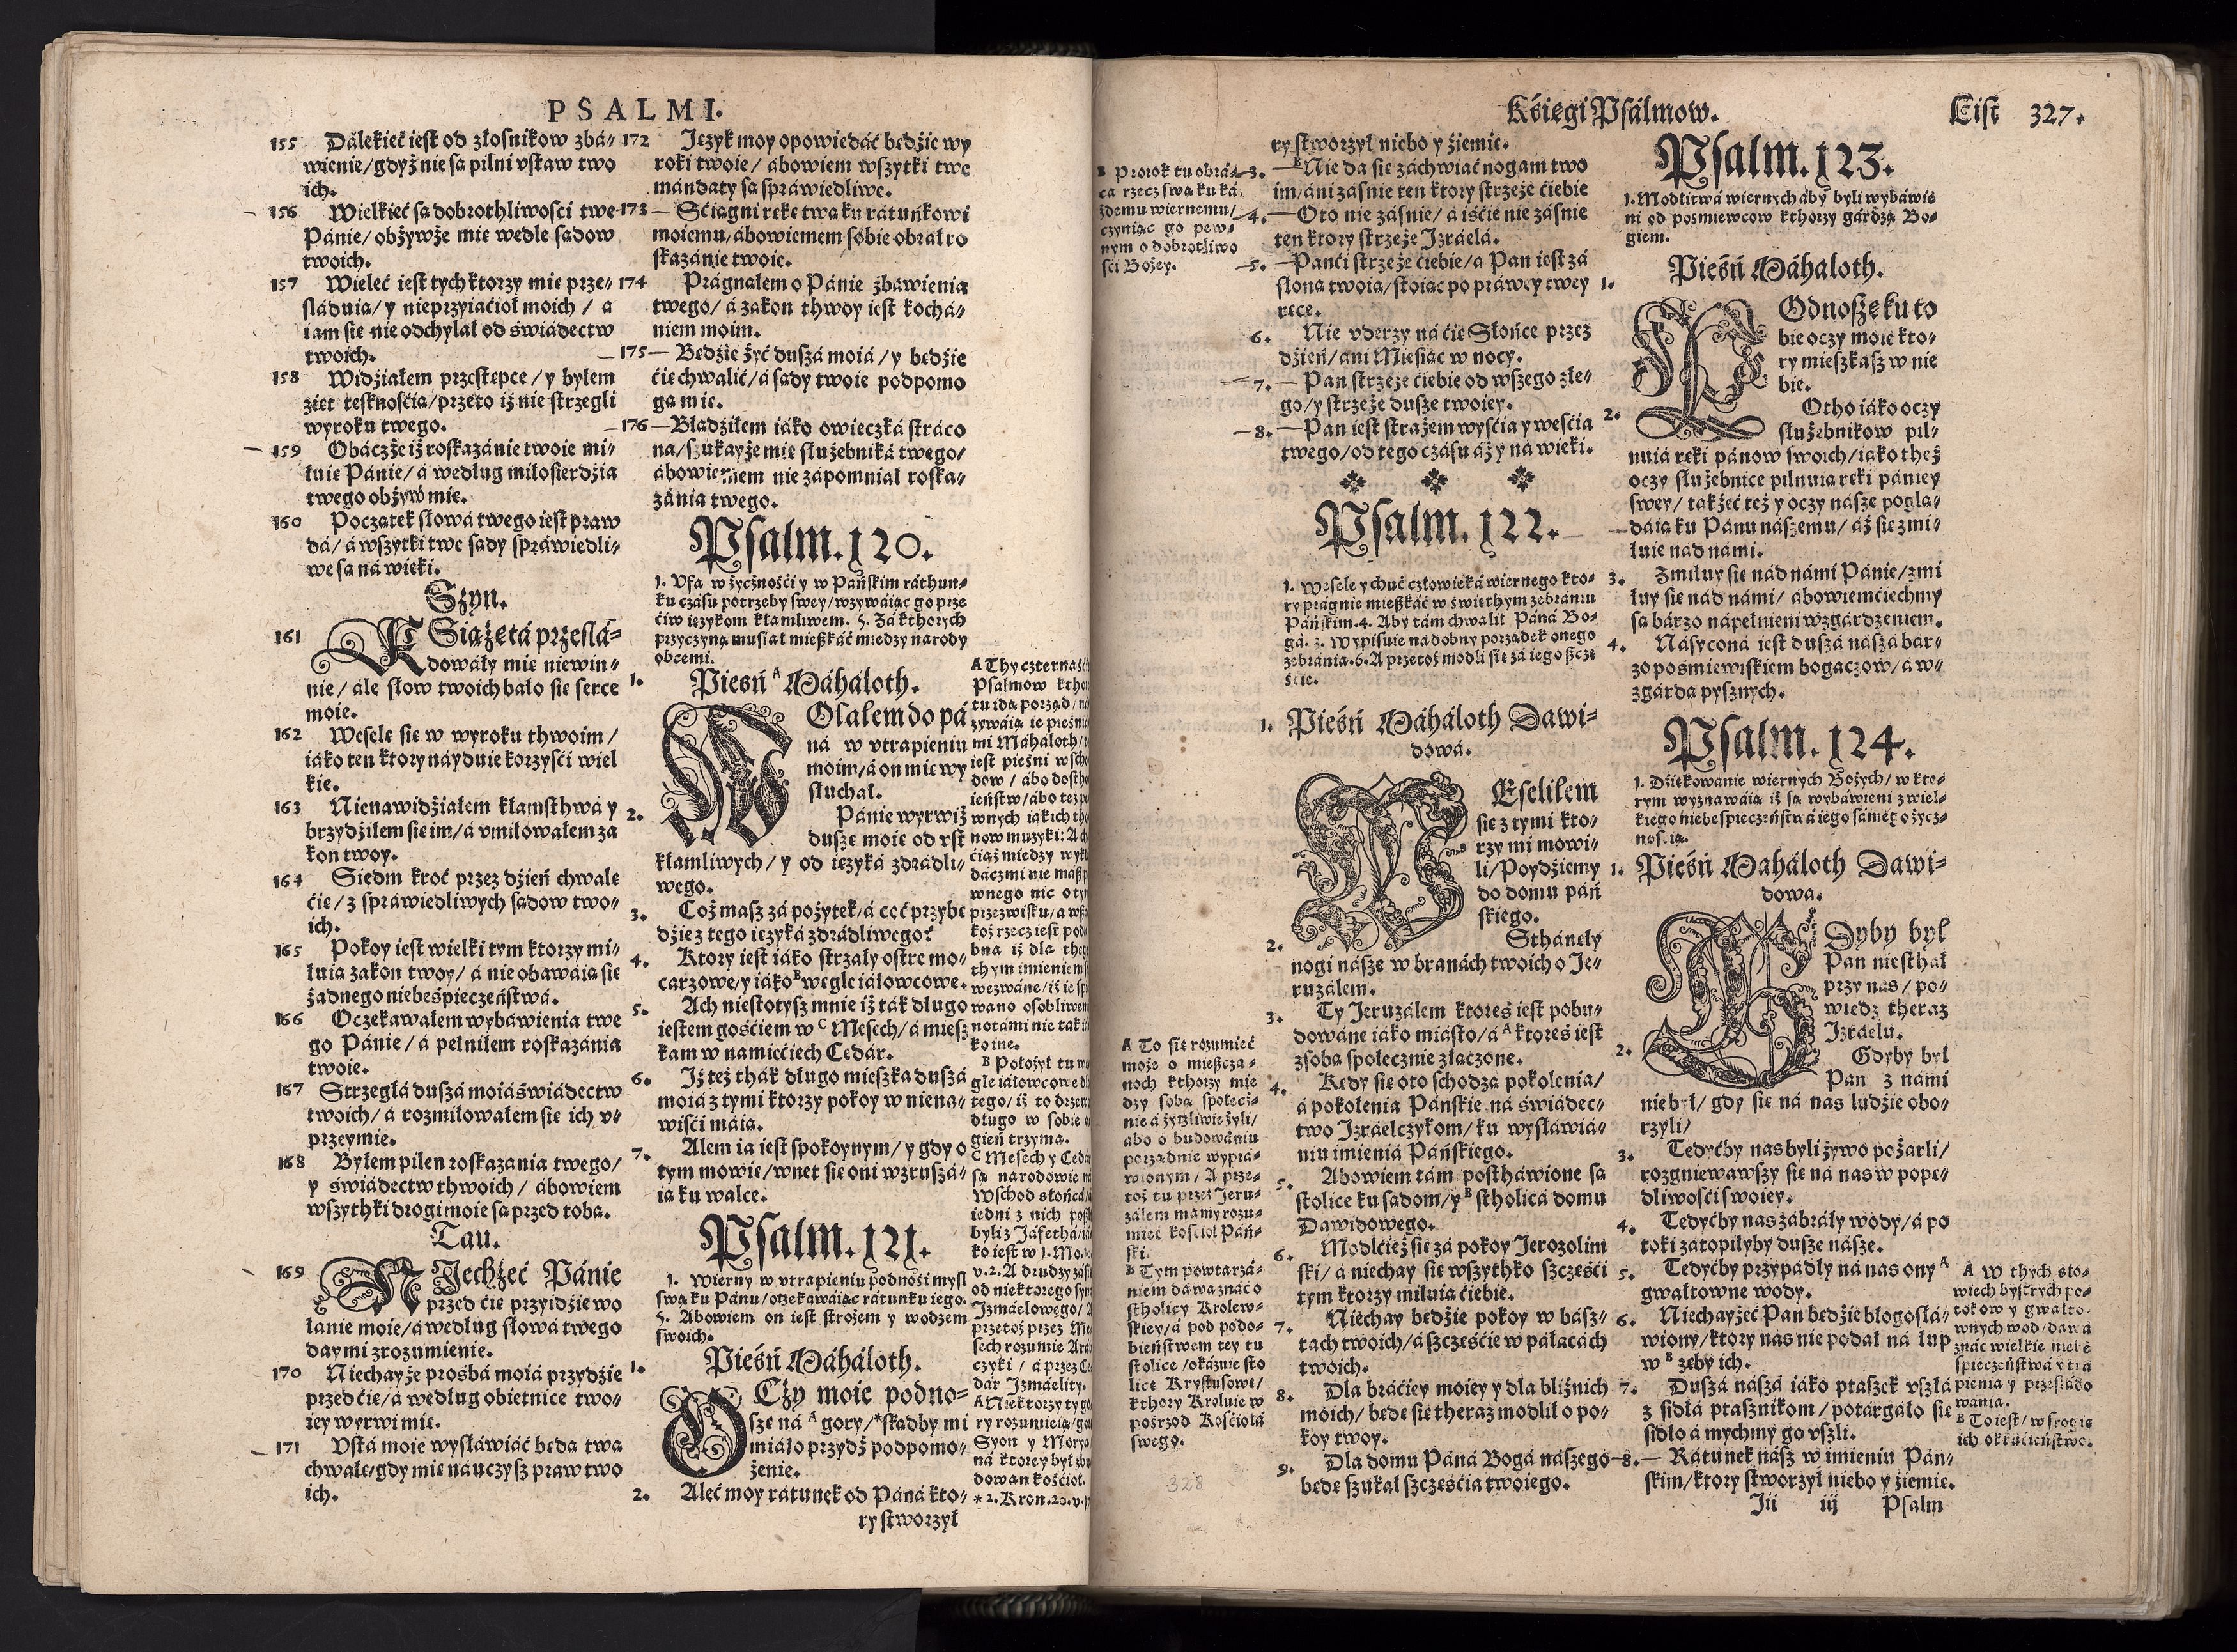 PSALMI.
155 Dálekieć iest od złosnikow zbá-
wienie/gdyż nie są pilni vstaw two
ich.
156 Wielkieć są dobrothliwosci twe
Pánie/obżywże mie wedle sądow
twoich.
157 Wieleć iest tych ktorzy mie prze-
sláduią/y nieprzyiaćioł moich/a
iam sie nie odchylał od świádectw
twoich.
158 Widźiałem przestępce/y byłem
zięt tesknośćią/przeto iż nie strzegli
wyroku twego.
159 Obáczże iż roskazánie twoie mi-
łuie Pánie/á według miłosierdzia
twego obżyw mie.
160 Początek słowá twego iest praw
dá/á wszytki twe sądy spráwiedli-
we są ná wieki.
Szyn.
161 KSiążętá przeslá-
dowáły mie niewin-
nie/ále słow twoich bało sie serce
moie.
162 Weselę się w wyroku thwoim/
iáko ten ktory náyduie korzyśći wiel
kie.
163 Nienawidźiałem kłamsthwá y
brzydziłem sie im/á vmiłowałem za
kon twoy.
164 Siedm kroć przez dźień chwalę
ćię/z spráwiedliwych sądow two-
ich.
165 Pokoy iest wielki tym ktorzy mi-
łuią zakon twoy/á nie obawáią sie
żadnego niebeśpieczeństwá.
166 Oczekawałem wybáwienia twe
go Pánie/á pełniłem roskazánia
twoie.
167 Strzegłá duszá moiá świádectw
twoich/á rozmiłowałem sie ich v-
przeymie.
168 Byłem pilen roskazania twego/
y świádectw thwoich/ábowiem
wszythki drogi moie są przed tobą.
Tau.
169 NIechżeć Pánie
przed ćię przyidzie wo
łanie moie/á według słowá twego
day mi zrozumienie.
170 Niechayże prosbá moiá przydzie
przed ćię/á według obietnice two-
iey wyrwi mie.
171 Vstá moie wysławiáć będą twą
chwałę/gdy mie náuczysz praw two
ich.
172 Język moy opowiedáć będźie wy
roki twoie/ábowiem wszytki twe
mándaty są spráwiedliwe.
173 Sćiągni rękę twą ku rátunkowi
moiemu/ábowiemem sobie obrał ro
skazánie twoie.
174 Prágnąłem o Pánie zbawienia
twego/á zakon thwoy iest kochá-
niem moim.
175 Będźie żyć duszá moiá/y będźie
ćię chwalić/á sądy twoie podpomo
gą mie.
176 Błądźiłem iáko owieczká stráco
na/szukayże mię służebniká twego/
ábowiemem nie zápomniał roska-
zánia twego.
Psalm. 120.
1. Vfa w życznośći y w Pańskim ráthun-
ku czásu potrzeby swey/wzywáiąc go prze
ćiw ięzykom kłamliwem. 5. Zá kthorych
przyczyną musiał mießkáć miedzy narody
obcemi.
1. Pieśń A Máháloth.
WOłałem do pá
ná w vtrapieniu
moim/á on mie wy
słuchał.
2. Pánie wyrwiż
duszę moię od vst
kłamliwych/y od ięzyká zdrádli-
wego.
3. Coż masz zá pożytek/á coć przybę
dzie z tego ięzyká zdrádliwego?
4. Ktory iest iáko strzały ostre mo-
carzowe/y iáko B węgle iáłowcowe.
5. Ach niestotysz mnie iż ták długo
iestem gośćiem w C Mesech/á miesz
kam w namiećiech Cedár.
6. Iż też thák długo mieszka duszá
moiá z tymi ktorzy pokoy w niena-
wiśći máią.
7. Alem ia iest spokoynym/y gdy o
tym mowię/wnet się oni wzruszá-
ią ku walce.
Psalm. 121.
1. Wierny w vtrapieniu podnośi mysl
swą ku Pánu/oczekawáiąc rátunku iego.
5. Abowiem on iest strożem y wodzem
swoich.
1. Pieśń Máháloth.
OCży moie podno-
szę ná A gory/*skądby mi
miáło przydź podpomo-
żenie.
2. Aleć moy rátunek od Páná kto-
ry stworzył
A Thy czternaśći
Psalmow
tu idą porząd/
zywáią ie pieśn
mi Máháloth/
iest pieśni w scho
dow/ábo
ieństw/ábo też
wnych iákich
now muzyki:
ćiaż miedzy
dáczmi nie máß
wnego nic o tym
przezwisku/a
koż rzecz iest
bna iż dla
thym imieniem
wezwáne/iż ie
wano osobliwe
notámi nie ták
ko ine.
B Położył tu
gle iałowcowe
tego/iż to drze
długo w sobie
gień trzyma.
C Mesech y Cedár
są narodowie
Wschod słońcá
iedni z nich
byli z Jáfethá/
ko iest w 1. Moi.
v. 2. A drudzy
od niektorego
Izmáelowego/
przetoż przez Me
sech rozumie Ará
czyki/á przez
dár Izmáelity.
A Niektorzy ty
ry rozumieią/
Syon y Morya
ná ktorey był
dowan kośćioł.
* 2. Kron. 20.
Kśięgi Psálmow. List 327.
B Prorok tu obrá-
ca rzecz swą ku ká
żdemu wiernemu/
czyniąc go pew-
nym o dobrotliwo
śći Bożey.
ry stworzył niebo y źiemię.
3. B Nie da się záchwiać nogam two
im/áni záśnie ten ktory strzeże ćiebie
4. Oto nie záśnie/á iśćie nie záśnie
ten ktory strzeże Izráelá.
5. Panći strzeże ćiebie/a Pan iest zá
słoną twoią/stoiąc po práwey twey
ręce.
6. Nie vderzy ná ćię Słońce przez
dźień/ani Mieśiąc w nocy.
7. Pan strzeże ćiebie od wszego złe-
go/y strzeże dusze twoiey.
8. Pan iest strażem wyśćia y weśćia
twego/od tego czásu áż y na wieki.
Psalm. 122.
1. Wesele y chuć człowieká wiernego kto-
ry prágnie mießkáć w świethym zebrániu
Páńskim. 4. Aby tám chwalił Páná Bo-
gá. 3. Wypisuie nadobny porządek onego
zebránia. 6. A przetoż modli się zá iego ßczę
śćie.
1. Pieśń Máháloth Dawi-
dowá.
WEseliłem
się z tymi kto-
rzy mi mowi-
li/Poydźiemy
do domu páń
skiego.
2. Sthánęły
nogi násze w branách twoich o Je-
ruzálem.
3. Ty Jeruzálem ktoreś iest pobu-
dowáne iáko miásto/á A ktoreś iest
z sobą społecznie złączone.
4. Kędy się oto schodzą pokolenia/
á pokolenia Páńskie ná świádec-
two Izráelczykom/ku wysławiá-
niu imieniá Páńskiego.
5. Abowiem tám posthawione są
stolice ku sądom/y B stholicá domu
Dawidowego.
6. Modlćież się zá pokoy Jerozolim
ski/á niechay się wszythko szczęśći
tym ktorzy miłuią ćiebie.
7. Niechay będźie pokoy w bász-
tach twoich/á szczęśćie w páłacách
twoich.
8. Dla bráćiey moiey y dla bliźnich
moich/będę się theraz modlił o po-
koy twoy.
9. Dla domu Páná Bogá nászego
będę szukał szczęśćia twoiego.
A To się rozumieć
może o mießcza-
noch kthorzy mie
dzy sobą społecz-
nie á życzliwie żyli/
abo o budowániu
porządnie wyprá-
wionym/A prze-
toż tu przez Jeru-
zálem mamy rozu-
mieć kośćioł Páń-
ski.
B Tym powtarzá-
niem dawa znáć o
stholicy Krolew-
skiey/á pod podo-
bieństwem tey tu
stolice/okázuie sto
lice Krystusowe/
kthory Kroluie w
pośrzod Kośćiołá
swego.
328
Psalm. 123.
1. Modlitwá wiernych áby byli wybáwie
ni od pośmiewcow kthorzy gárdzą Bo-
giem.
Pieśń Máháloth.
1. POdnoszę ku to
bie oczy moie kto-
ry mieszkasz w nie
bie.
2. Otho iáko oczy
służebnikow pil-
nuią ręki pánow swoich/iako theż
oczy służebnice pilnuią ręki pániey
swey/tákżeć też y oczy násze poglą-
dáią ku Pánu nászemu/áż się zmi-
łuie nad námi.
3. Zmiłuy się nád námi Pánie/zmi
łuy się nád námi/ábowiemćiechmy
są bárzo nápełnieni wzgárdzeniem.
4. Násyconá iest duszá nászá bar-
zo pośmiewiskiem bogaczow/á w-
zgárdą pysznych.
Psalm. 124.
1. Dźiękowanie wiernych Bożych/w kto-
rym wyznawáią iż są wybáwieni z wiel-
kiego niebespieczeństwá iego sámego życz-
nością.
1. Pieśń Maháloth Dawi-
dowa.
GDyby był
Pan niesthał
przy nas/po-
wiedz theraz
Izráelu.
2. Gdyby był
Pan z námi
nie był/gdy się ná nas ludźie obo-
rzyli/
3. Tedyćby nas byli żywo pożarli/
rozgniewawszy się ná nas w pope-
dliwośći swoiey.
4. Tedyćby nas zábráły wody/á po
toki zátopiłyby dusze násze.
5. Tedyćby przypádły ná nas ony A
gwałtowne wody.
6. Niechayżeć Pan będźie błogosłá-
wiony/ktory nas nie podał ná łup
w B zęby ich.
7. Duszá nászá iáko ptaszek vszłá
z śidłá ptasznikom/potárgáło się
śidło á mychmy go vszli.
8. Rátunek nász w imieniu Páń-
skim/ktory stworzył niebo y źiemię.
A W thych sto-
wiech bystrych po-
tokow y gwałto-
wnych wod/dawa
znáć wielkie niebe
śpieczeństwá y tra
pienia y prześlado
wania.
B To iest/w srogie
ich okrućieństwo.
Iii iij Psalm